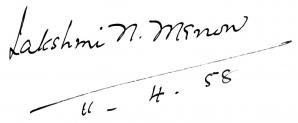 Lakshmi N. Menon
11 - 4 . 58